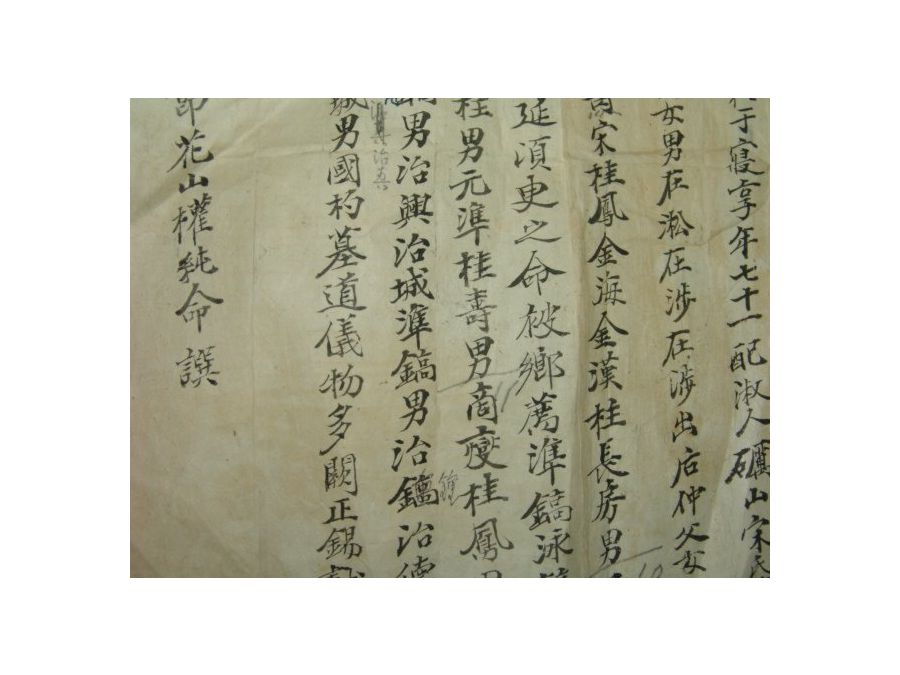 于寢享年七十一配淑人礪山宋氏
女男在淞在涉在渉出后仲父女
宋桂鳳金海金漢桂長房男
延湏更之命被鄉薦準鎬泳
桂男元準桂壽男商燮桂鳳
男治興治城準鎬男治鐘治德
鍾
治
城男國杓墓道儀物多闕正錫
印花山權純命 譔